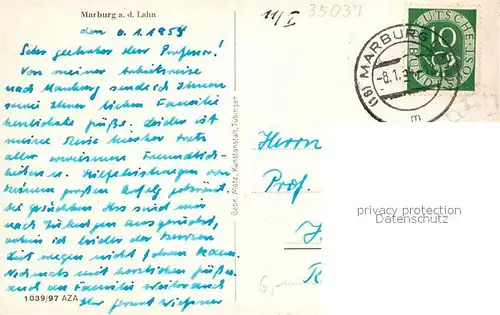 Marburg a. d. Lahn
11/I
35037
den 6.1.1954
Sehr geehrter Herr Professor!
Von meiner Arbeitsreise
nach Marburg sende ich Ihnen
sowie Ihrer lieben Familie
herzlichste Grüße. Leider ist
meine Reise hierher trotz
aller erwiesenen Freundlich-
keiten u. Hilfeleistungen von
keinem großen Erfolg gekrönt,
die gesuchten sind
nach Tübingen ausgerückt,
wohin ich leider der kurzen
Zeit wegen nicht fahren kann.
Nochmals mit herzlichen Grüßen
auch der Familie
Ihr Ernst
1039/97 AZA
Gebr. Metz, Kunstanstalt, Tübingen
DEUTSCHE BUNDESPOST
10
(16) MARBURG
-8.1.5
Herrn
Prof.
privacy protection
Datenschutz